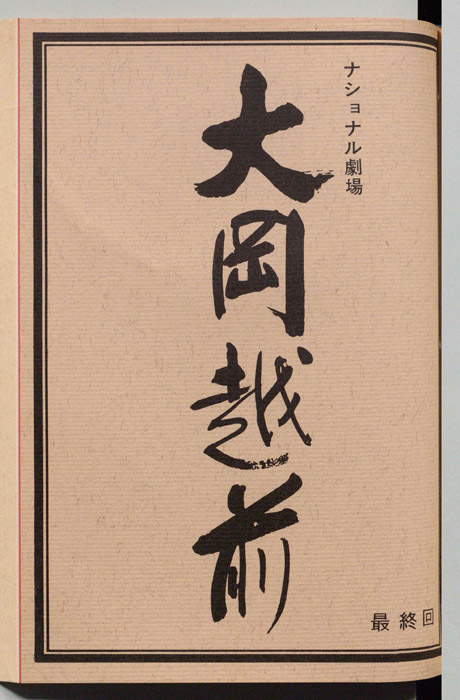 ナショナル劇場
大岡越前
最終回